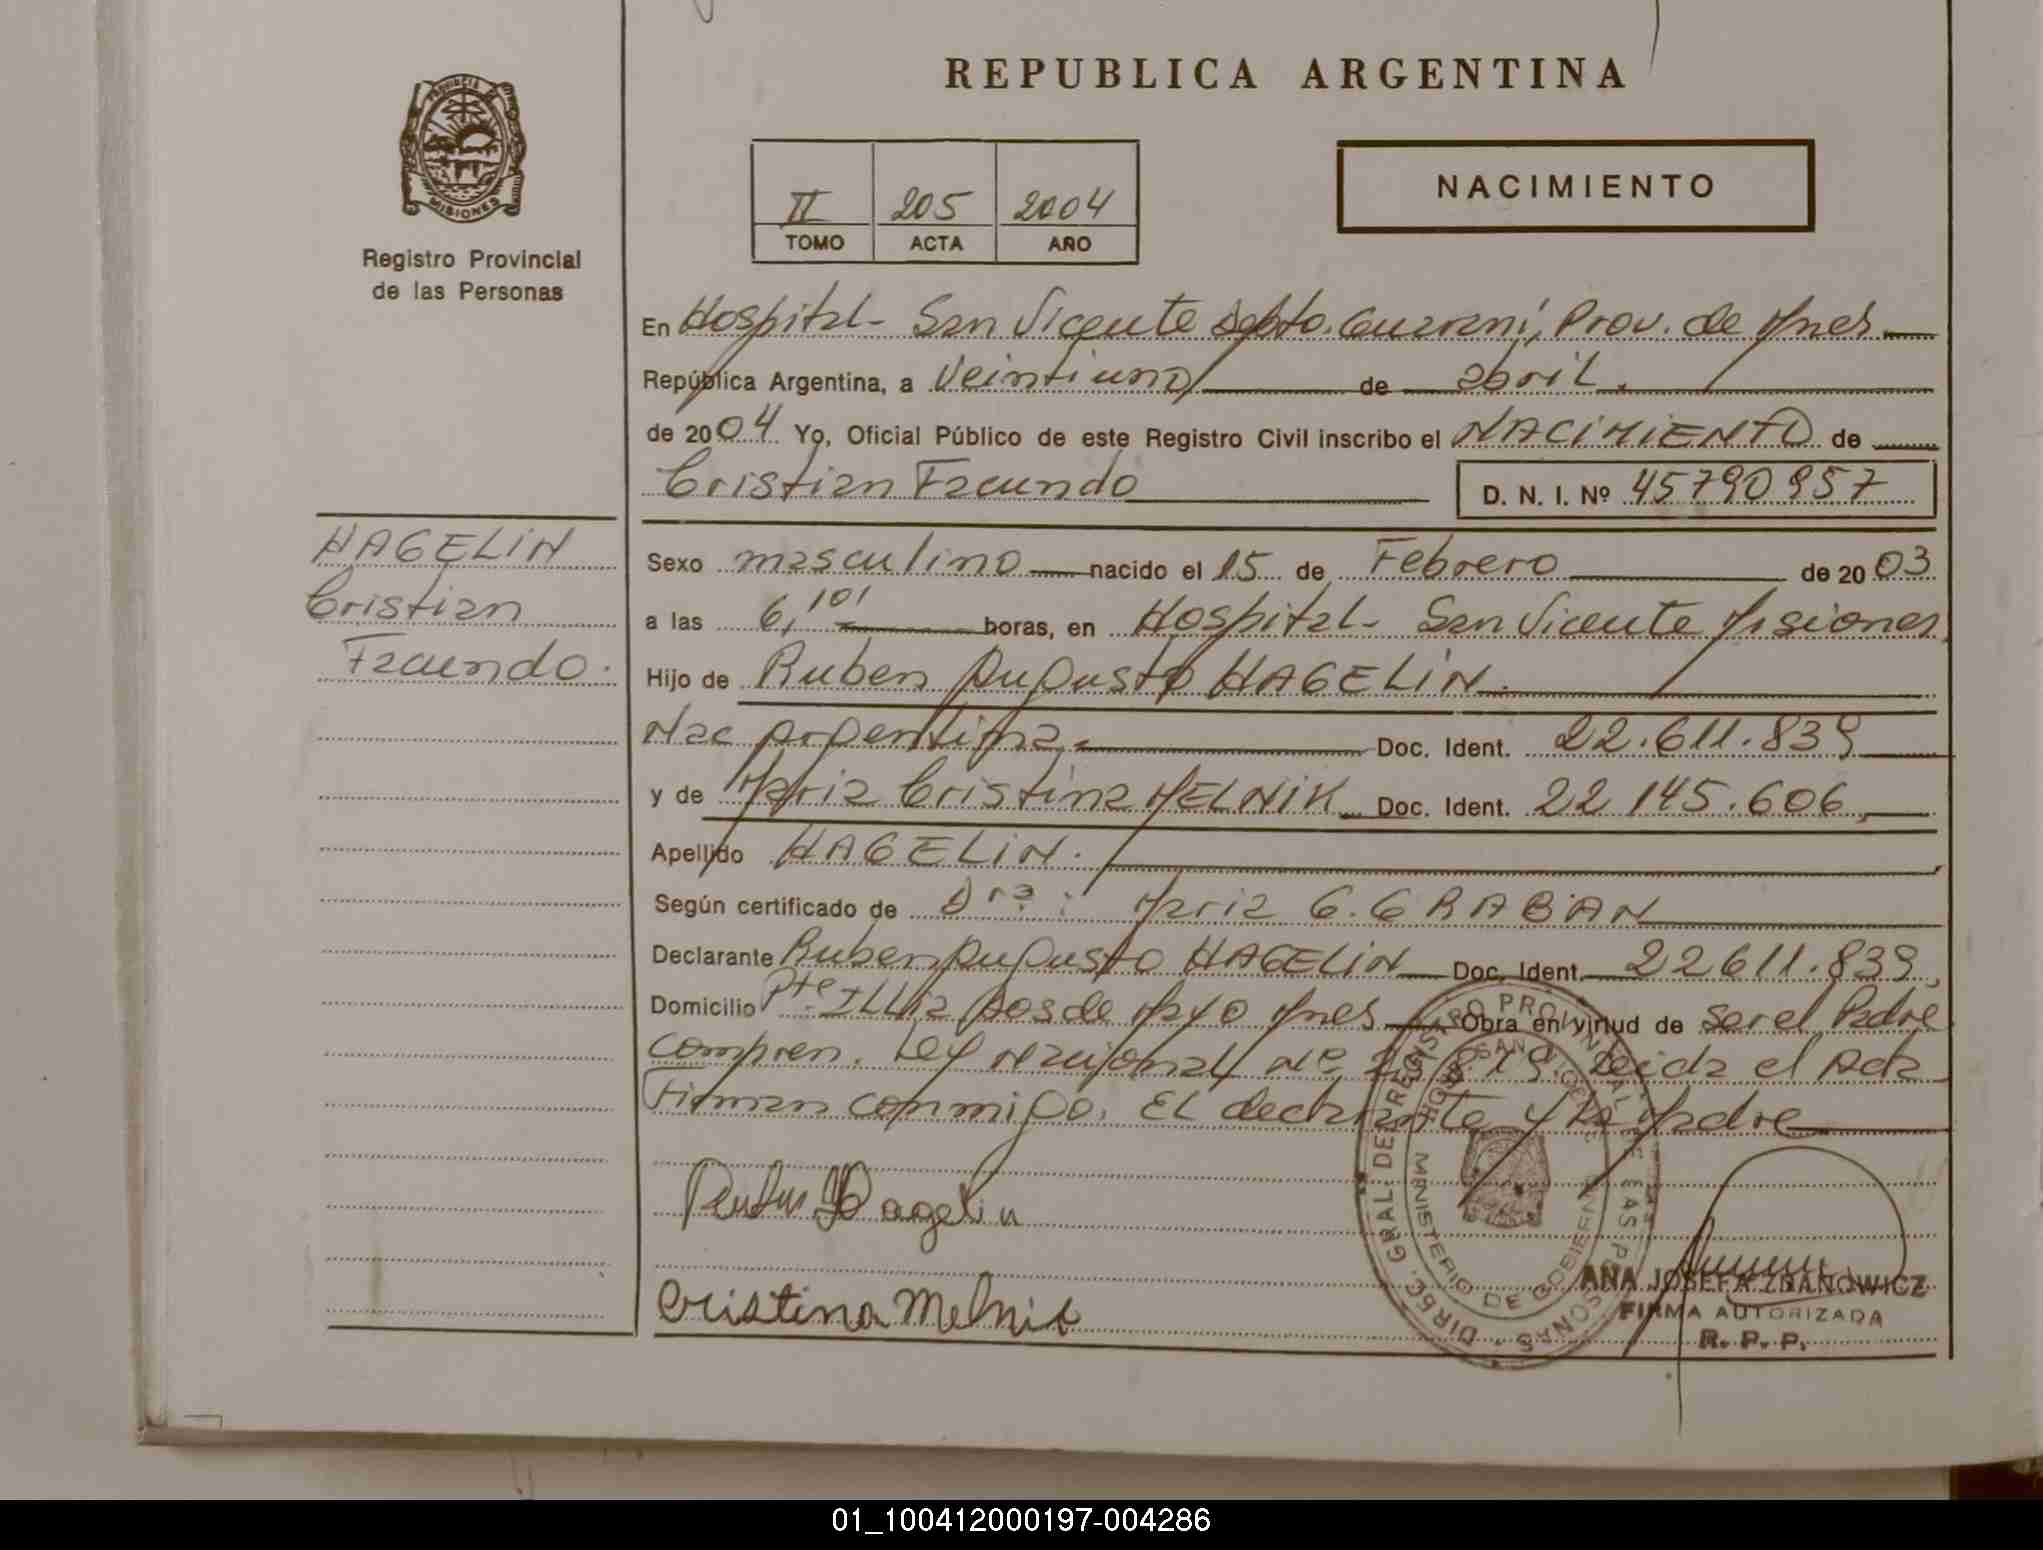 REPUBLICA ARGENTINA
PROVINCIA DE
MISIONES
Registro Provincial
de las Personas
II 205 2004
TOMO ACTA AÑO
NACIMIENTO
En Hospital - San Vicente Dpto. Guarani, Prov. de Mnes.
República Argentina, a Veintiuno de abril.
de 2004 Yo, Oficial Público de este Registro Civil inscribo el NACIMIENTO de
Cristian Facundo D. N. I. Nº 45790957
HAGELIN
Cristian
Facundo.
Sexo masculino nacido el 15 de Febrero de 2003
a las 6,10' horas, en Hospital - San Vicente Misiones
Hijo de Ruben Augusto HAGELIN.
Nac Argentina. Doc. Ident. 22.611.839
y de Maria Cristina MELNIK Doc. Ident. 22 145.606
Apellido HAGELIN.
Según certificado de Dra: Maria G. GRABAN
Declarante Ruben Augusto HAGELIN Doc. Ident. 22611.839
Domicilio Pte Illia Dos de Mayo Mnes Obra en virtud de ser el Padre
compren. Ley nacional Nº leida el Acta
Firman conmigo. El declarante y la Madre
Hagelin
Cristina Melnik
DIREC. GRAL. DEL REGISTRO PROVINCIAL DE LAS PERSONAS
MINISTERIO DE GOBIERNO
ANA JOSEFA ZDANOWICZ
FIRMA AUTORIZADA
R. P. P.
01_100412000197-004286